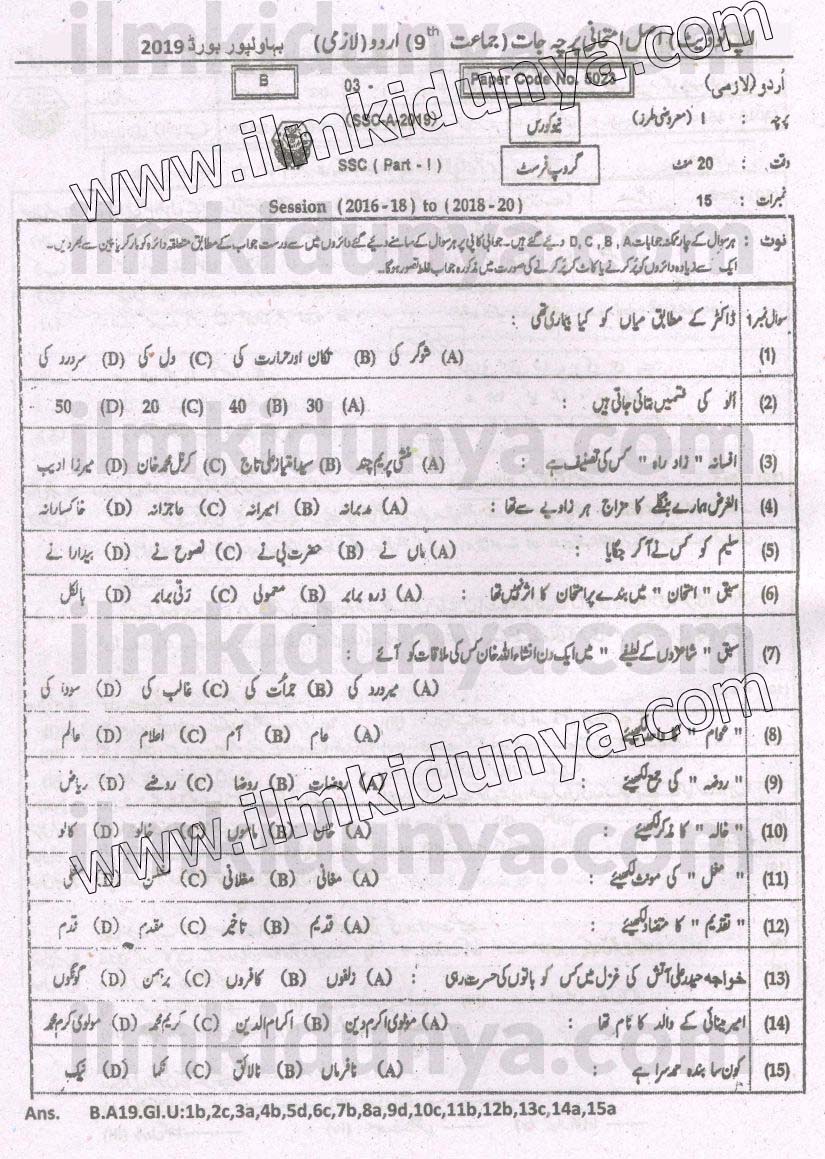 اپ ٹو ڈیٹ امتحانی پرچہ جات (جماعت 9th) اردو (لازمی) بہاولپور بورڈ 2019
اُردو (لازمی) Paper Code No. 5023 03 - B
پرچہ : I (معروضی طرز) نیو کورس (SSC-A-2019)
وقت : 20 منٹ گروپ فرسٹ SSC ( Part - I )
نمبرات : 15 Session (2016-18) to (2018-20)
نوٹ : ہر سوال کے چار ممکنہ جوابات D, C, B, A دیے گئے ہیں۔ جوابی کاپی پر ہر سوال کے سامنے دیے گئے دائروں میں سے درست جواب کے مطابق متعلقہ دائرہ کو مارکر یا پین سے بھر دیں۔
ایک سے زیادہ دائروں کو پُر کرنے یا کاٹ کر پُر کرنے کی صورت میں مذکورہ جواب غلط تصور ہوگا۔
سوال نمبر1 ڈاکٹر کے مطابق میاں کو کیا بیماری تھی :
(1) (A) شوگر کی (B) تکان اور حرارت کی (C) دل کی (D) سر درد کی
(2) اُلو کی قسمیں بتائی جاتی ہیں : (A) 30 (B) 40 (C) 20 (D) 50
(3) افسانہ " زاد راہ " کس کی تصنیف ہے : (A) منشی پریم چند (B) سید امتیاز علی تاج (C) کرنل محمد خان (D) میرزا ادیب
(4) الغرض ہمارے بنگلے کا مزاج ہر زاویے سے تھا : (A) مدبرانہ (B) امیرانہ (C) عاجزانہ (D) خاکسارانہ
(5) سلیم کو کس نے آ کر جگایا : (A) ماں نے (B) حضرت بی نے (C) نصوح نے (D) بیدارا نے
(6) سبق " امتحان " میں بندے پر امتحان کا اثر نہیں تھا : (A) ذرہ برابر (B) معمولی (C) رتی برابر (D) بالکل
(7) سبق " شاعروں کے لطیفے " میں ایک دن انشاء اللہ خان کس کی ملاقات کو آئے :
(A) میر درد کی (B) جرأت کی (C) غالب کی (D) سودا کی
(8) " عوام " (A) عام (B) آم (C) اعلام (D) عالم
(9) " روضہ " کی جمع لکھیئے (A) روضات (B) روضا (C) روضے (D) ریاض
(10) " خالہ " کا مذکر لکھیئے (A) خان (B) ماموں (C) خالو (D) کالو
(11) " مغل " کی مونث لکھیئے : (A) مغانی (B) مغلانی (C)
(12) " تقدیم " کا متضاد لکھیئے : (A) قدیم (B) تاخیر (C) مقدم (D) قدم
(13) خواجہ حیدر علی آتش کی غزل میں کس کو باتوں کی حسرت رہی : (A) زلفوں (B) کافروں (C) برہمن (D) گونگوں
(14) امیر مینائی کے والد کا نام تھا : (A) مولوی اکرم دین (B) اکرام الدین (C) کریم محمد (D) مولوی کرم محمد
(15) کون سا بندہ حمد سرا ہے : (A) نافرماں (B) نالائق (C) نکما (D) نیک
Ans. B.A19.GI.U:1b,2c,3a,4b,5d,6c,7b,8a,9d,10c,11b,12b,13c,14a,15a
www.ilmkidunya.com
www.ilmkidunya.com
ilmkidunya.com
ilmkidunya.com
ilmkidunya.com
ilmkidunya.com
ilmkidunya.com
ilmkidunya.com